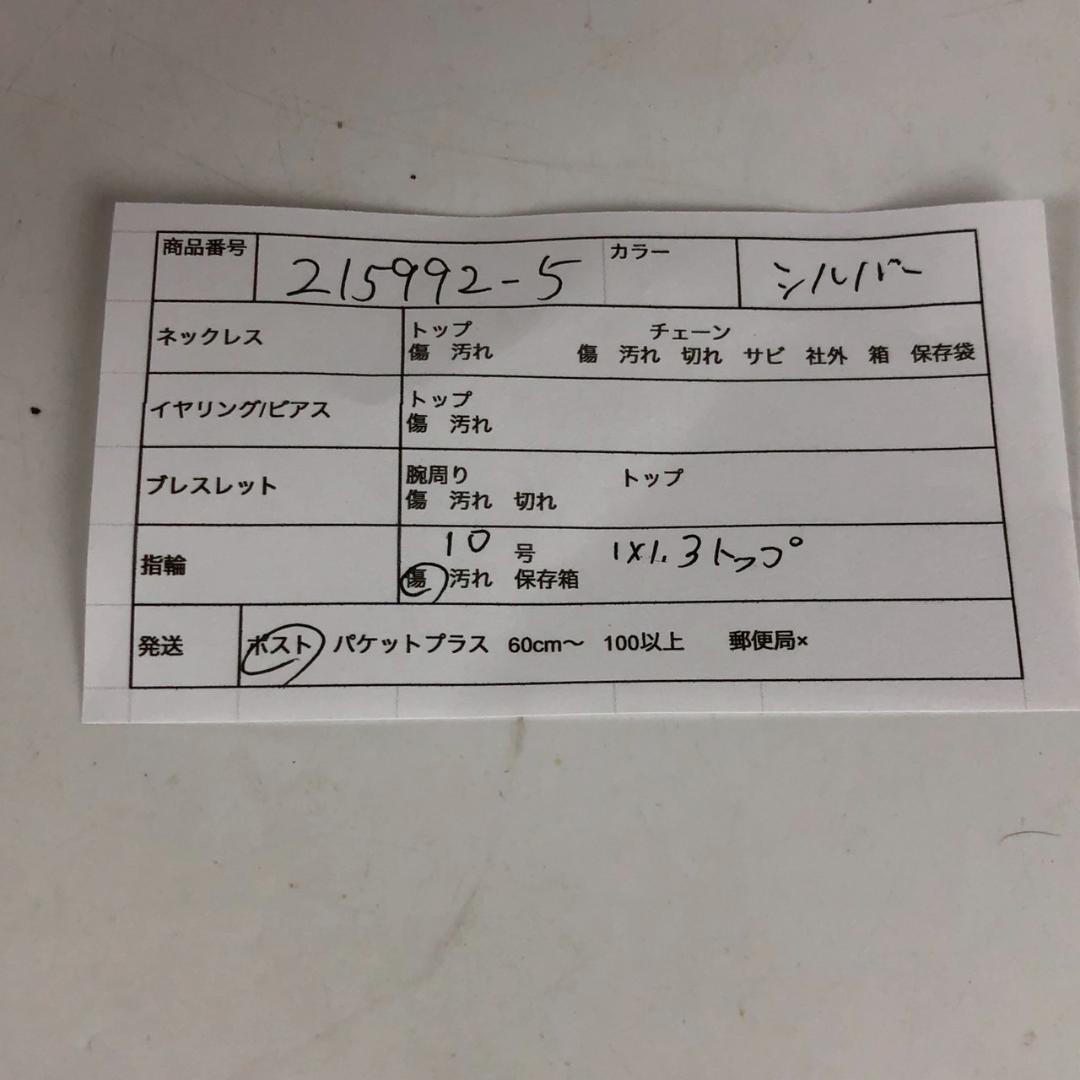 商品番号 215992-5 カラー シルバー
ネックレス トップ チェーン
傷 汚れ 傷 汚れ 切れ サビ 社外 箱 保存袋
イヤリング/ピアス トップ
傷 汚れ
ブレスレット 腕周り トップ
傷 汚れ 切れ
指輪 10 号 1×1.3トップ
傷 汚れ 保存箱
発送 ポスト パケットプラス 60cm〜 100以上 郵便局×